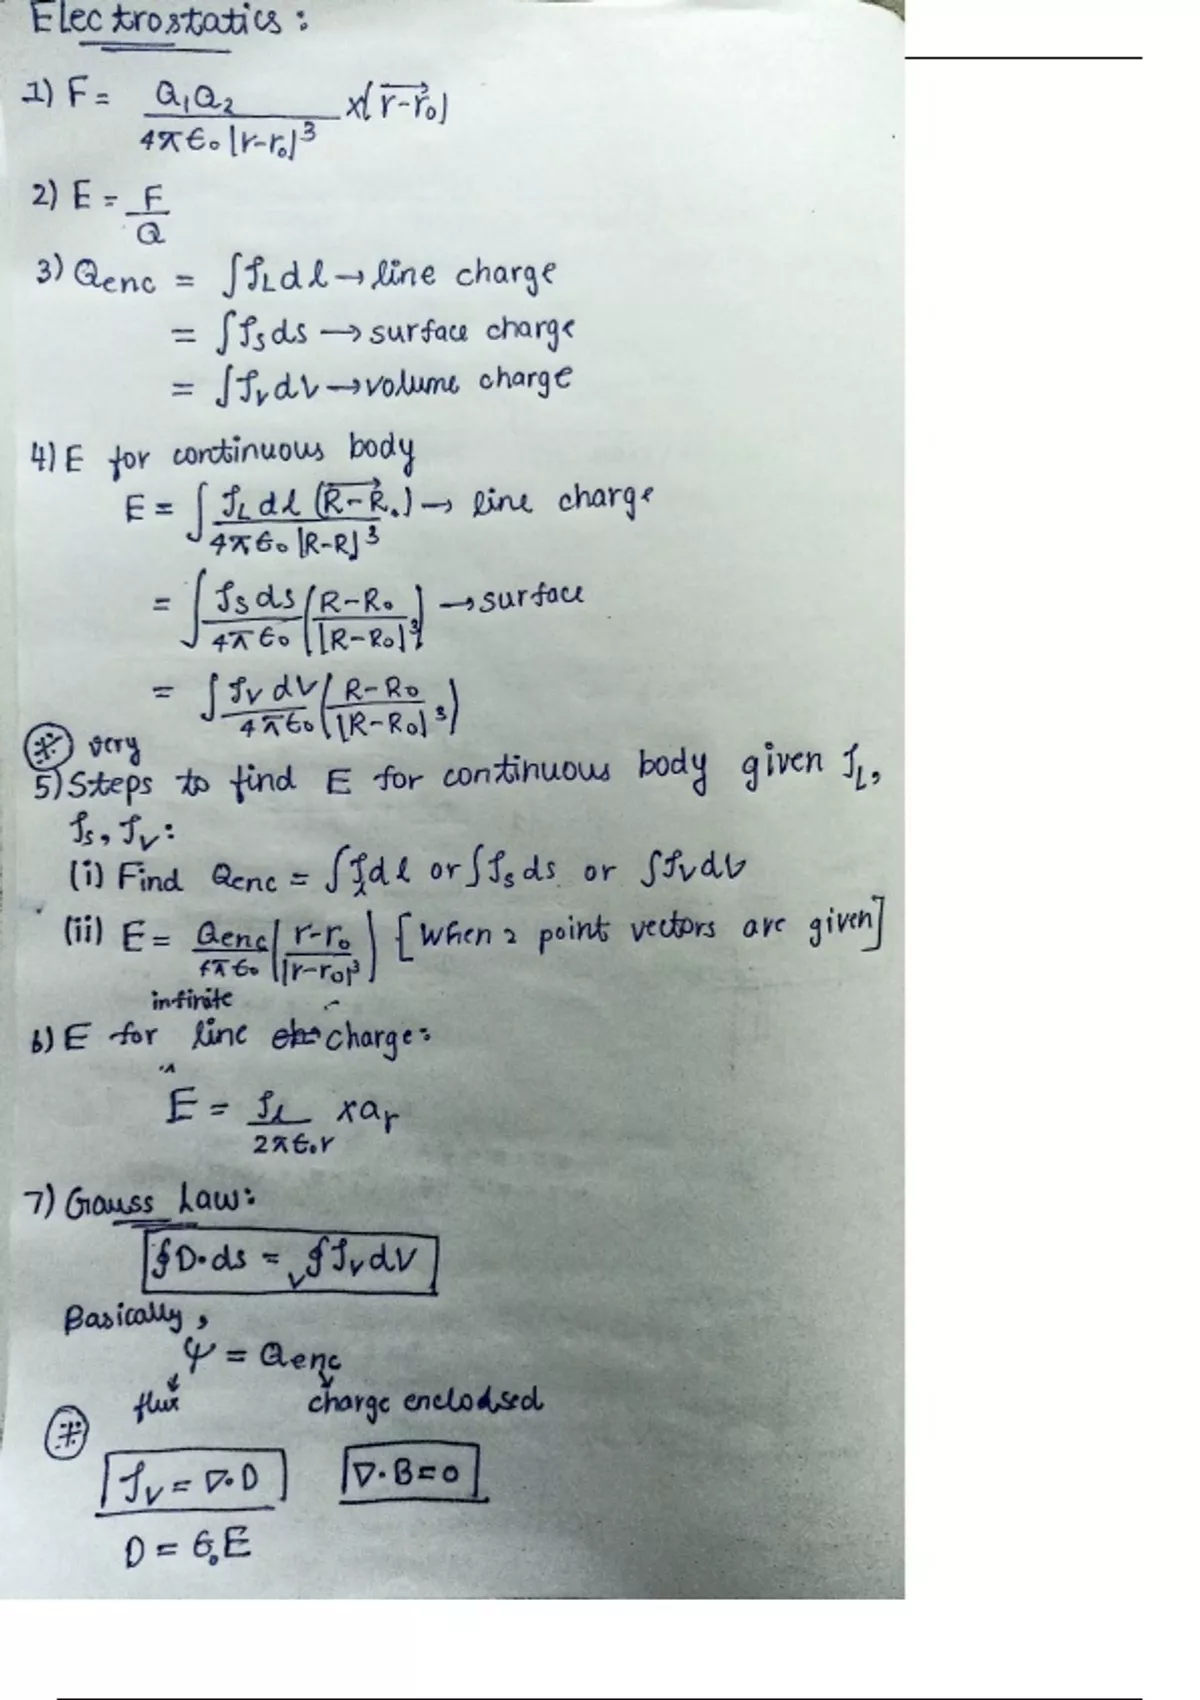 Electrostatics:
1) F = Q₁Q₂ / 4πϵ₀|r-r₀|³ x(r-r₀)
2) E = F / Q
3) Qenc = ∫ρL dl → line charge
= ∫ρs ds → surface charge
= ∫ρv dv → volume charge
4) E for continuous body
E = ∫ ρL dl (R-R₀) / 4πϵ₀ |R-R|³ → line charge
= ∫ ρs ds / 4πϵ₀ (R-R₀ / |R-R₀|³) → surface
= ∫ ρv dv / 4πϵ₀ (R-R₀ / |R-R₀|³)
* very
5) Steps to find E for continuous body given ρL,
ρs, ρv:
(i) Find Qenc = ∫ρL dl or ∫ρs ds or ∫ρv dv
(ii) E = Qenc / 4πϵ₀ (r-r₀ / |r-r₀|³) [When 2 point vectors are given]
infinite
6) E for line charge:
E = ρL / 2πϵ₀r x ar
7) Gauss Law:
∮D·ds = ᵥ∮ρv dv
Basically,
Ψ = Qenc
flux charge enclodsed
*
ρv = ∇·D ∇·B = 0
D = ϵ₀E